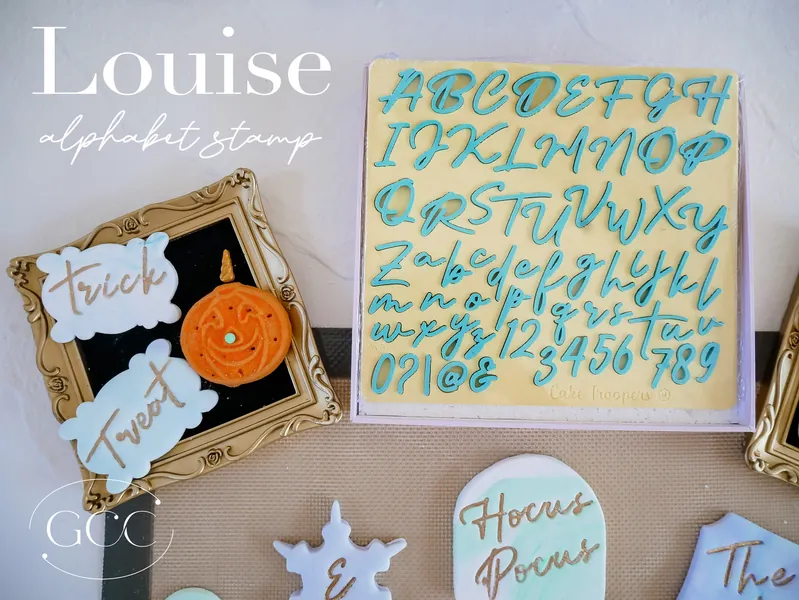 Louise
alphabet stamp
A B C D E F G H
I J K L M N O P
Q R S T U V W X Y
Z a b c d e f g h i j k l
m n o p q r s t u v
w x y z 1 2 3 4 5 6 7 8 9
0 ? ! @ &
Cake Troopers
Trick
Treat
GCC
Hocus
Pocus
E
The